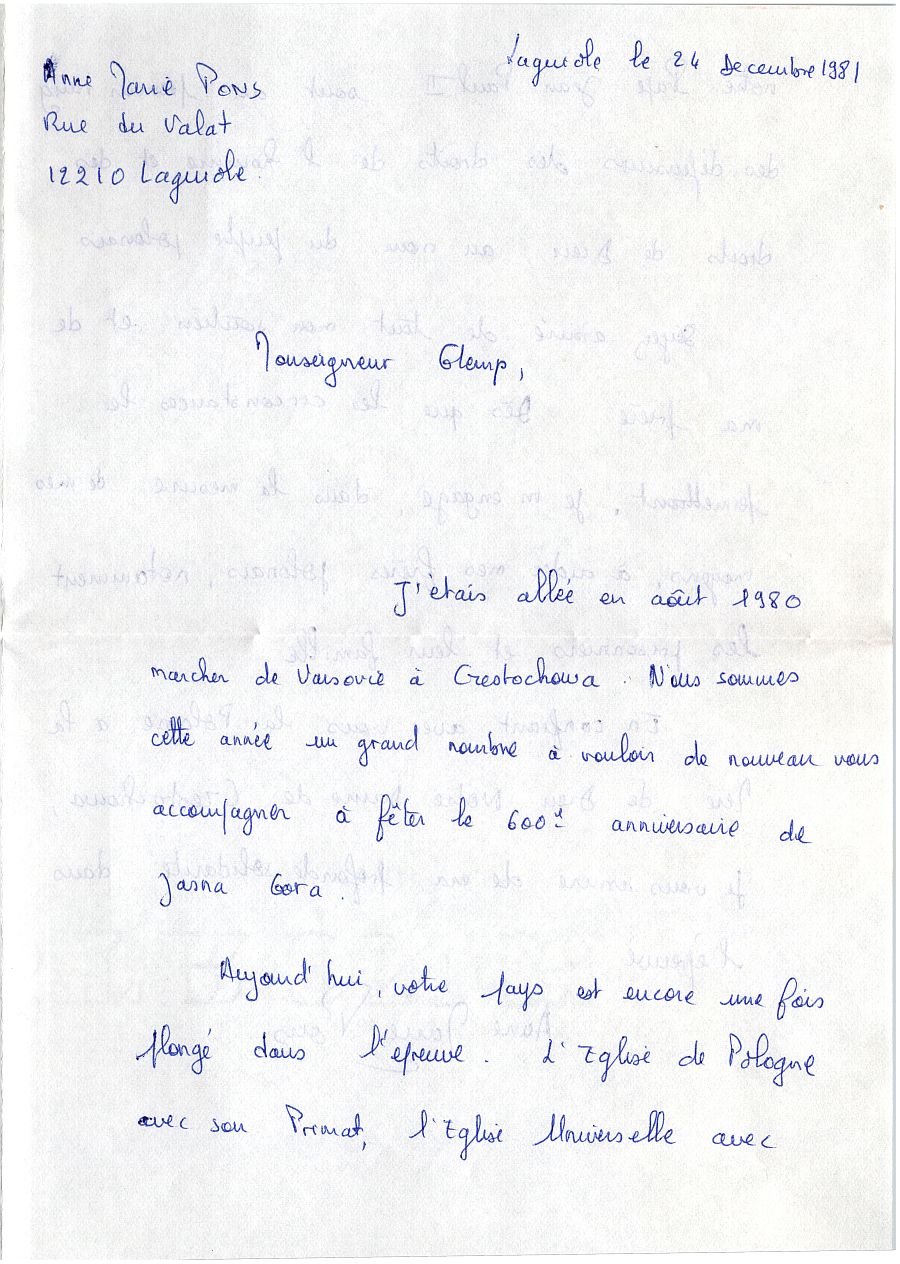 Anne Marie Pons
Laguiole le 24 Decembre 1981
Rue du Valat
12210 Laguiole.
Monseigneur Glemp,
J'étais allée en août 1980
marcher de Varsovie à Crestochowa. Nous sommes
cette année un grand nombre à vouloir de nouveau vous
accompagner à fêter le 600e anniversaire de
Jasna Gora.
Aujourd'hui, votre pays est encore une fois
plongé dans l'épreuve. L'Eglise de Pologne
avec son Primat, l'Eglise Universelle avec